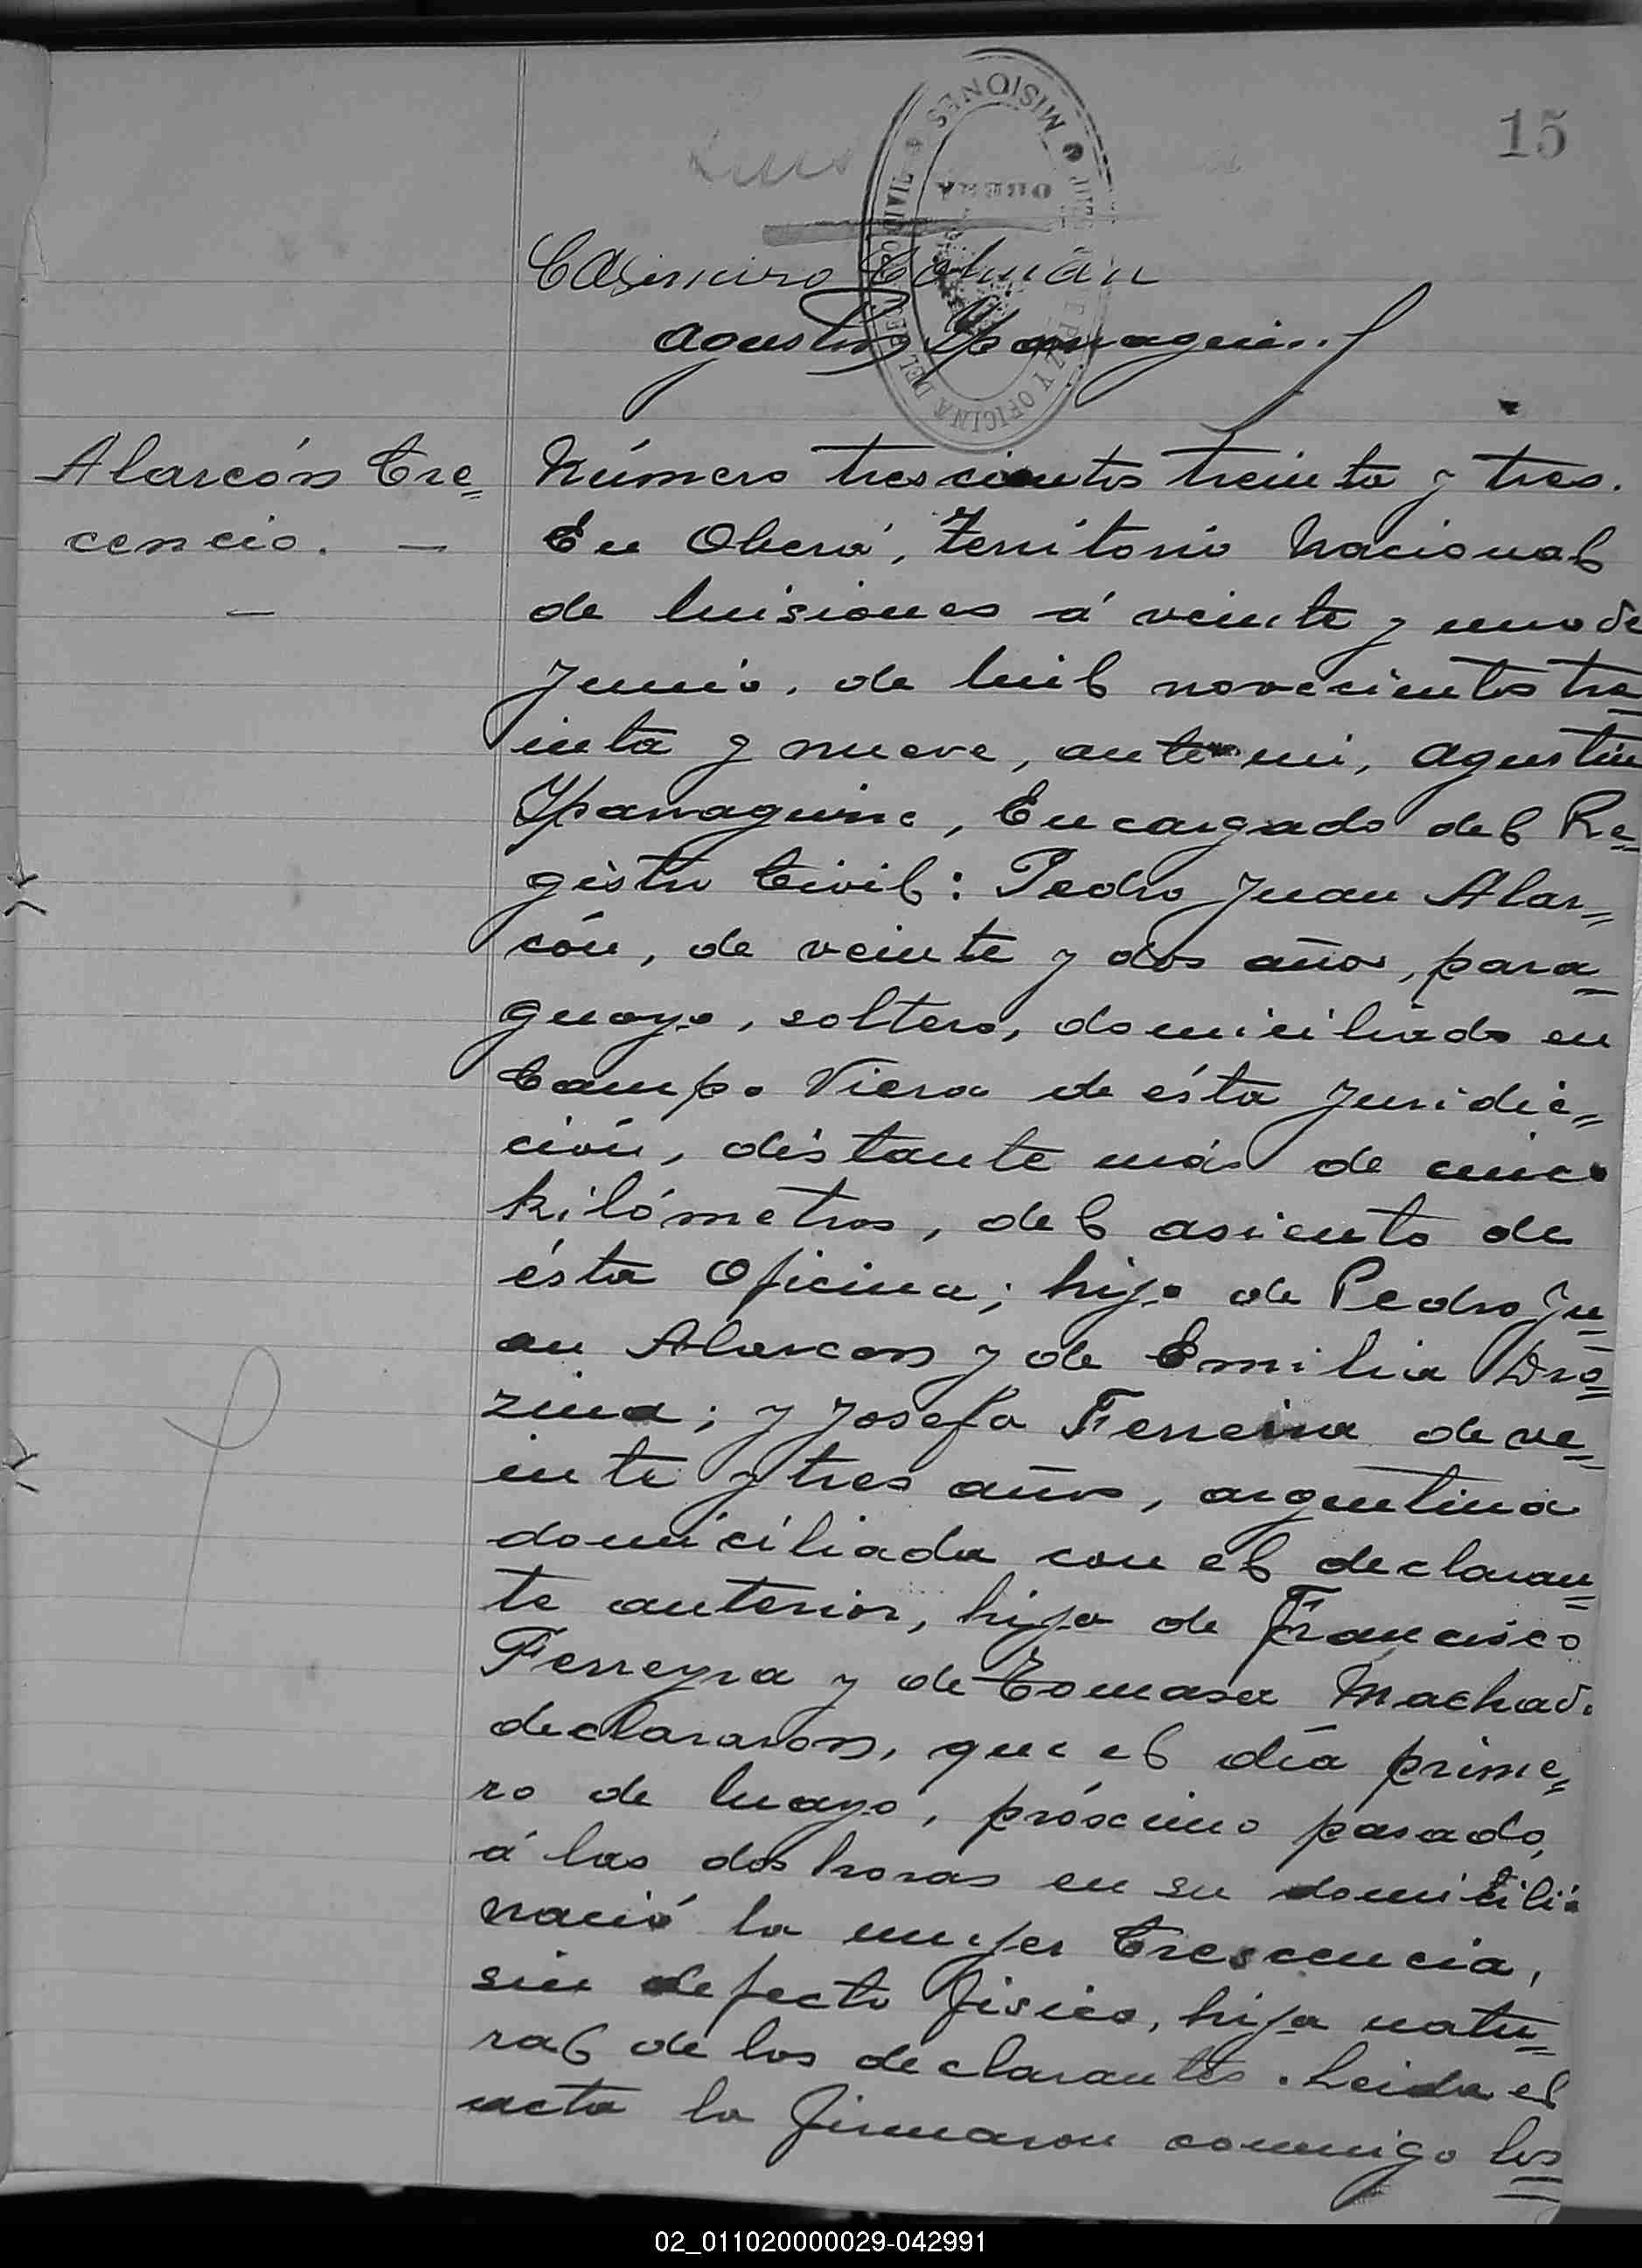 15
MISIONES
OBERA
Casimiro
Agustín Yparraguirre
Alarcón Cre=
cencio. —
—
Número trescientos treinta y tres.
En Oberá, Territorio Nacional
de Misiones á veinte y uno de
Junio, de mil novecientos tre=
inta y nueve, ante mi, Agustín
Yparraguirre, Encargado del Re=
gistro Civil: Pedro Juan Alar=
cón, de veinte y dos años, para=
guayo, soltero, domiciliado en
Campo Viera de ésta Juridic=
ción, distante más de cinco
kilómetros, del asiento de
ésta Oficina; hijo de Pedro Ju=
an Alarcon y de Emilia
; y Josefa Ferreira de ve=
inte y tres años, argentina
domiciliada con el declaran=
te anterior, hija de Francisco
Ferreyra y de Tomasa Machado
declararon, que el día prime=
ro de Mayo, próximo pasado,
á las dos horas en su domicilio
nació la mujer Crescencia,
sin defecto físico, hija natu=
ral de los declarantes. Leida el
acta la firmaron conmigo los=
02_011020000029-042991